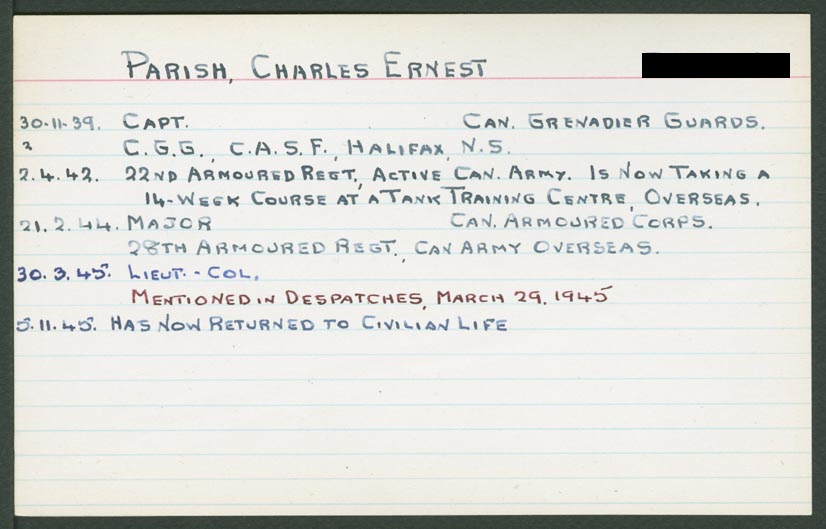 PARISH, CHARLES ERNEST
30.11.39. CAPT. CAN. GRENADIER GUARDS.
? C.G.G., C.A.S.F., HALIFAX, N.S.
2.4.42. 22ND ARMOURED REGT, ACTIVE CAN. ARMY. IS NOW TAKING A
14-WEEK COURSE AT A TANK TRAINING CENTRE, OVERSEAS.
21.2.44. MAJOR CAN. ARMOURED CORPS.
28TH ARMOURED REGT., CAN ARMY OVERSEAS.
30.3.45. LIEUT.-COL.
MENTIONED IN DESPATCHES, MARCH 29, 1945
5.11.45. HAS NOW RETURNED TO CIVILIAN LIFE